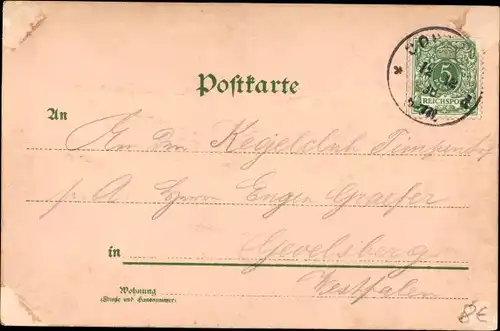 Postkarte
5
REICHSPOST
An
An den Kegelclub
p. A. Herrn Eugen Graefer
in Gevelsberg
Westfalen
Wohnung
(Straße und Hausnummer)
8€